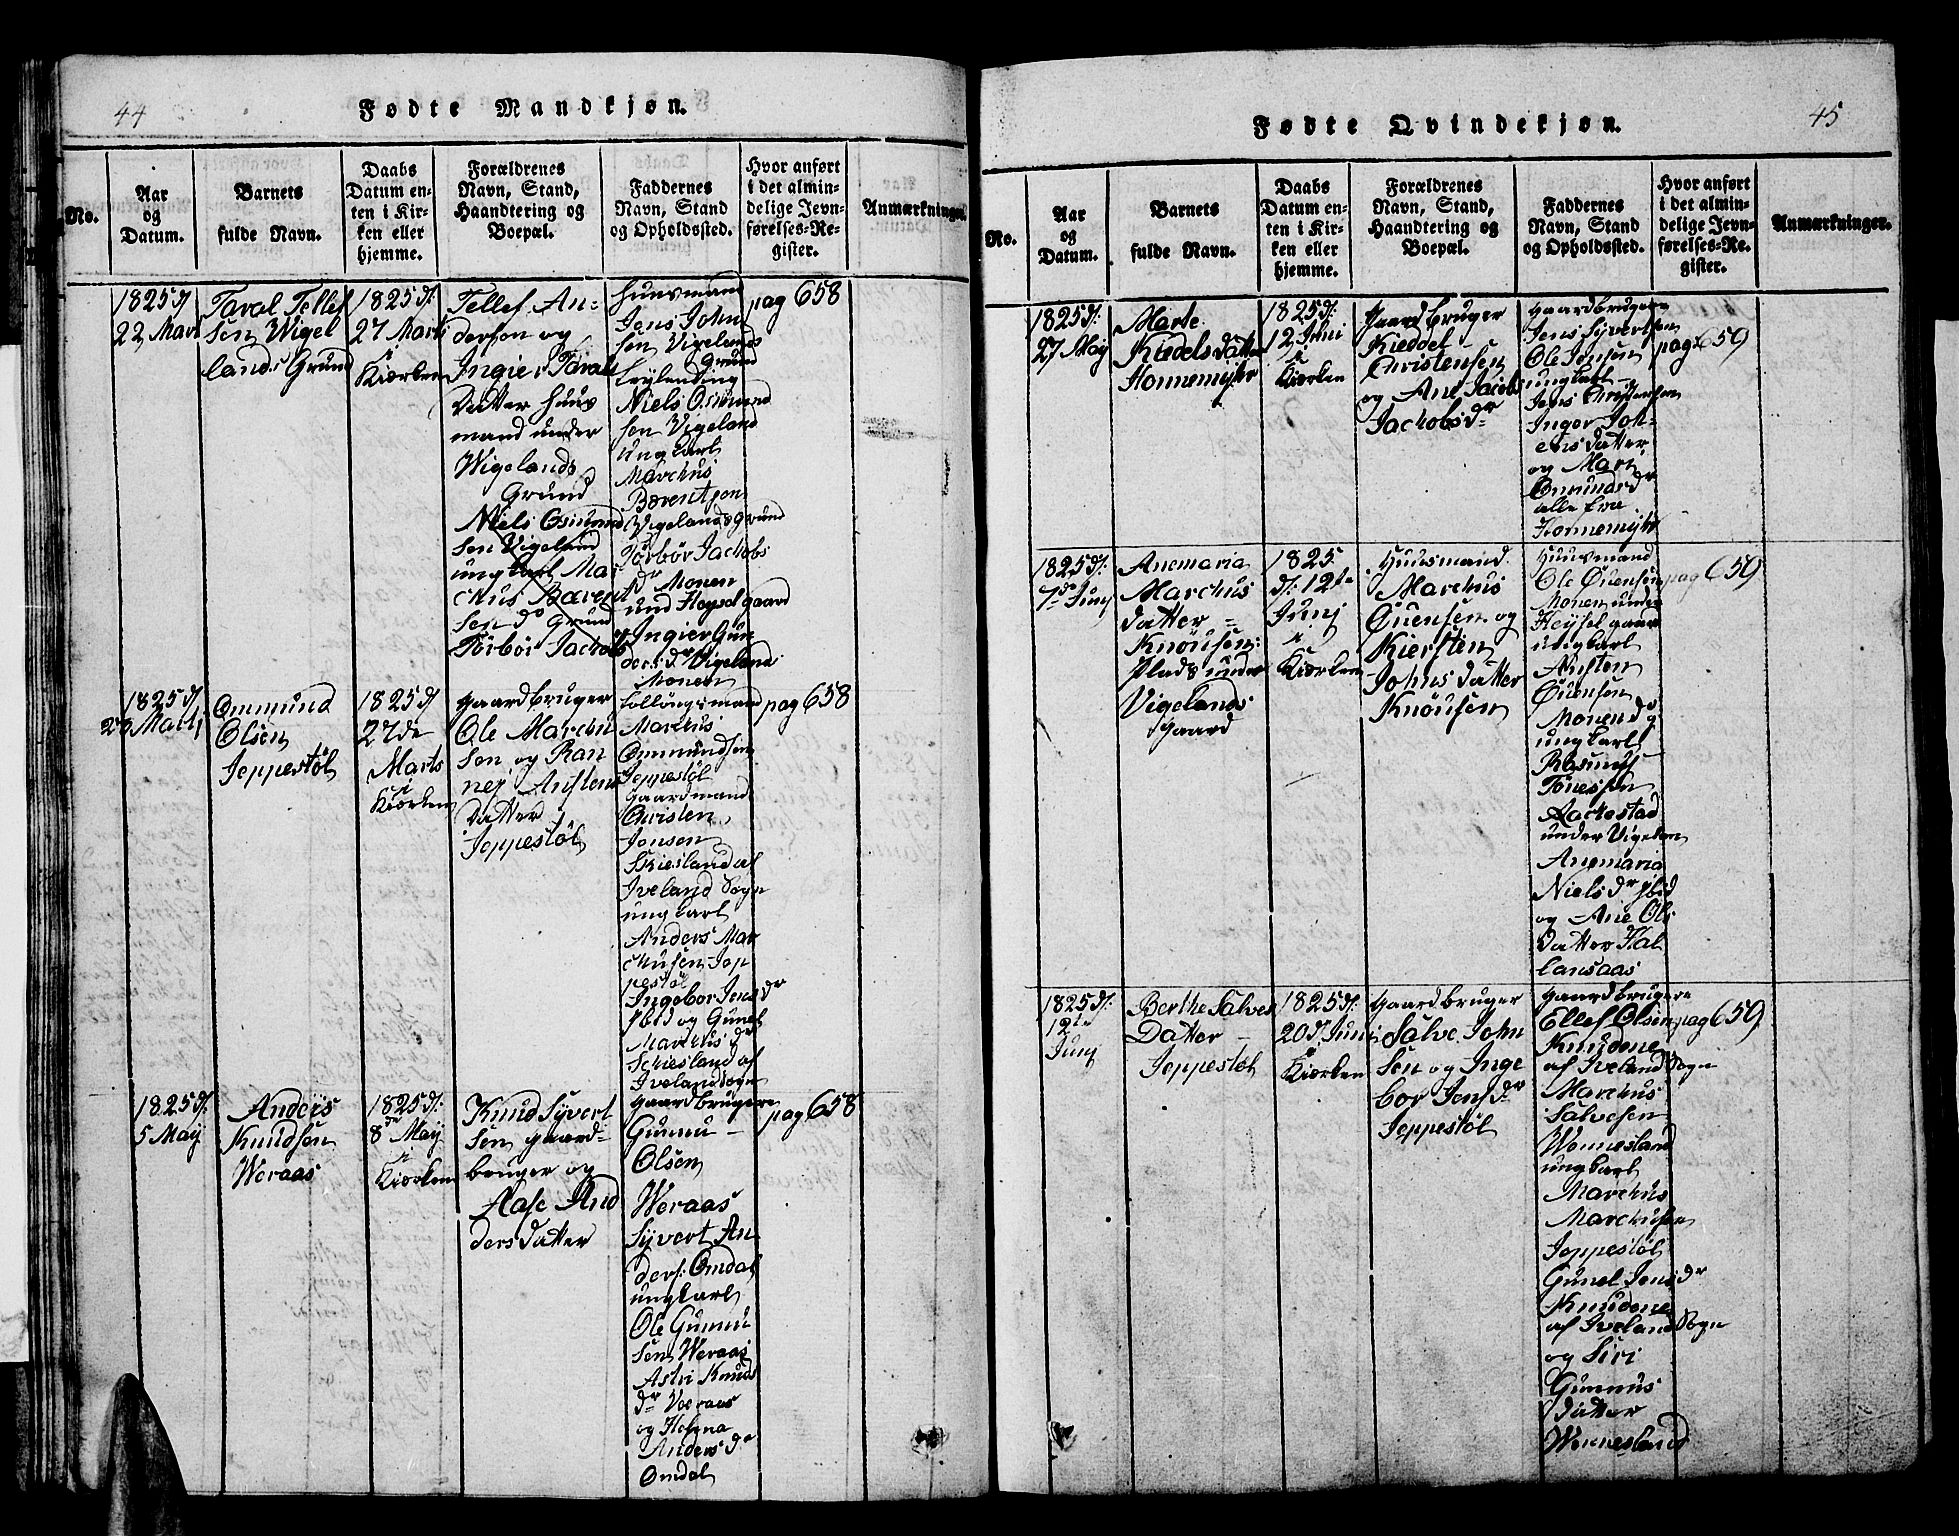 44
Fødte Mandkjøn.
No.
Aar
og
Datum.
Barnets
fulde Navn.
Daabs
Datum en-
ten i Kir-
ken eller
hjemme.
Forældrenes
Navn, Stand,
Haandtering og
Boepæl.
Faddernes
Navn, Stand
og Opholdssted.
Hvor anført
i det almin-
delige Jevn-
førelses-Re-
gister.
Anmærkninger.
1825 d
22 Mars
Taral Tellef
sen Wigel
lands Grund
1825 d:
27 Marts
Kiørken
Tellef An-
dersen og
Ingier Tarals
Datter Huus
mand under
Wigelands
Grund
Niels Osmund
sen Vigeland
ungkarl Mar
chus Barent
sen do Grund
Tørbør Jachobs
Huusmand
Jens John
sen Vigelands
Grund
Niels Osmund
sen Vigeland
ungkarl
Marchus
Bærentsen
Vigelands grund
Tørbør Jachobs
dr Monen
und Heysel gaard
Ingier Gun
ders dr Vigeland
Monen
pag 658
1825 d
Ommund
Olsen
Jeppestøl
1825 d
27de
Marts
Kiørken
gaardbruger
Ole Marchu
sen og Ran
nej Anstens
Datter
Jeppestøl
Marchus
Ommundsen
Jeppestøl
gaardmand
Christen
Jonsen
Skiesland af
Iveland Sogn
ungkarl
Anders Mar
chusen Jep
pestøl
Ingebor Jens dr
ibid og Gunel
Marchus dr
Schiesland af
Iveland Sogn
pag 658
1825 d:
5 May
Anders
Knudsen
Weraas
1825 d:
8de May
Kiørken
Knud Syvert
sen gaard-
bruger og
Aase And
ders datter
gaardbrugere
Gunnu-
Olsen
Weraas
Syvert An-
ders: Omdal
ungkarl
Ole Gunnu
sen Weraas
Astri Knuds
dr Veraas
og Helena
Anders dr
Omdal
pag 658
45
Fødte Qvindekjøn.
No.
Aar
og
Datum.
Barnets
fulde Navn.
Daabs
Datum en-
ten i Kir-
ken eller
hjemme.
Forældrenes
Navn, Stand,
Haandtering og
Boepæl.
Faddernes
Navn, Stand
og Opholdssted.
Hvor anført
i det almin-
delige Jevn-
førelses-Re-
gister.
Anmærkninger.
1825 d:
27 May
Marte
Kiedels datter
Honnemyhr
1825 d:
12 Juni
Kiørken
gaardbruger
Kieddel
Christensen
og Ane Jacobs
Jachobs dr
gaardbrugere
Jens Syvertsen
Ole Jensen
ungkarl
Jens Christensen
Inger Joh-
ens datter
og Mari
Ommunds dr
alle fra
Honnemyhr
pag: 659
1825 d:
7de Junj
Anemaria
Marchus
datter =
Knøusen:
Plads under
Vigelands
gaard
1825
d: 12te
Junj
Kiørken
Huusmand
Marchus
Ouensen og
Kiersten
Johns datter
Knøusen
Huusmand
Ole Ouensen
Monen under
Heysel gaard
ungkarl
Ansten
Ouensen
Monen do
ungkarl
Rasmus
Tønessen
Aachestad
under Vigelan
Anemaria
Niels dr ibid
og Ane Ols
datter Kal
lansaas
pag 659
1825 d:
12te
Junj
Berthe Salves
Datter -
Jeppestøl
1825 d:
20 d: Juni
Kiørken
gaardbruger
Salve John
sen og Inge
bor Jens dr
Jeppestøl
gaardbrugere
Ellef Olsen
Knudene
af Iveland Sogn
Marchus
Salvesen
Wennesland
ungkarl
Marchus
Marchusen
Jeppestøl
Gunel Jens dr
Knudene
af Iveland Sogn
og Siri
Gunnus
datter
Wennesland
pag 659